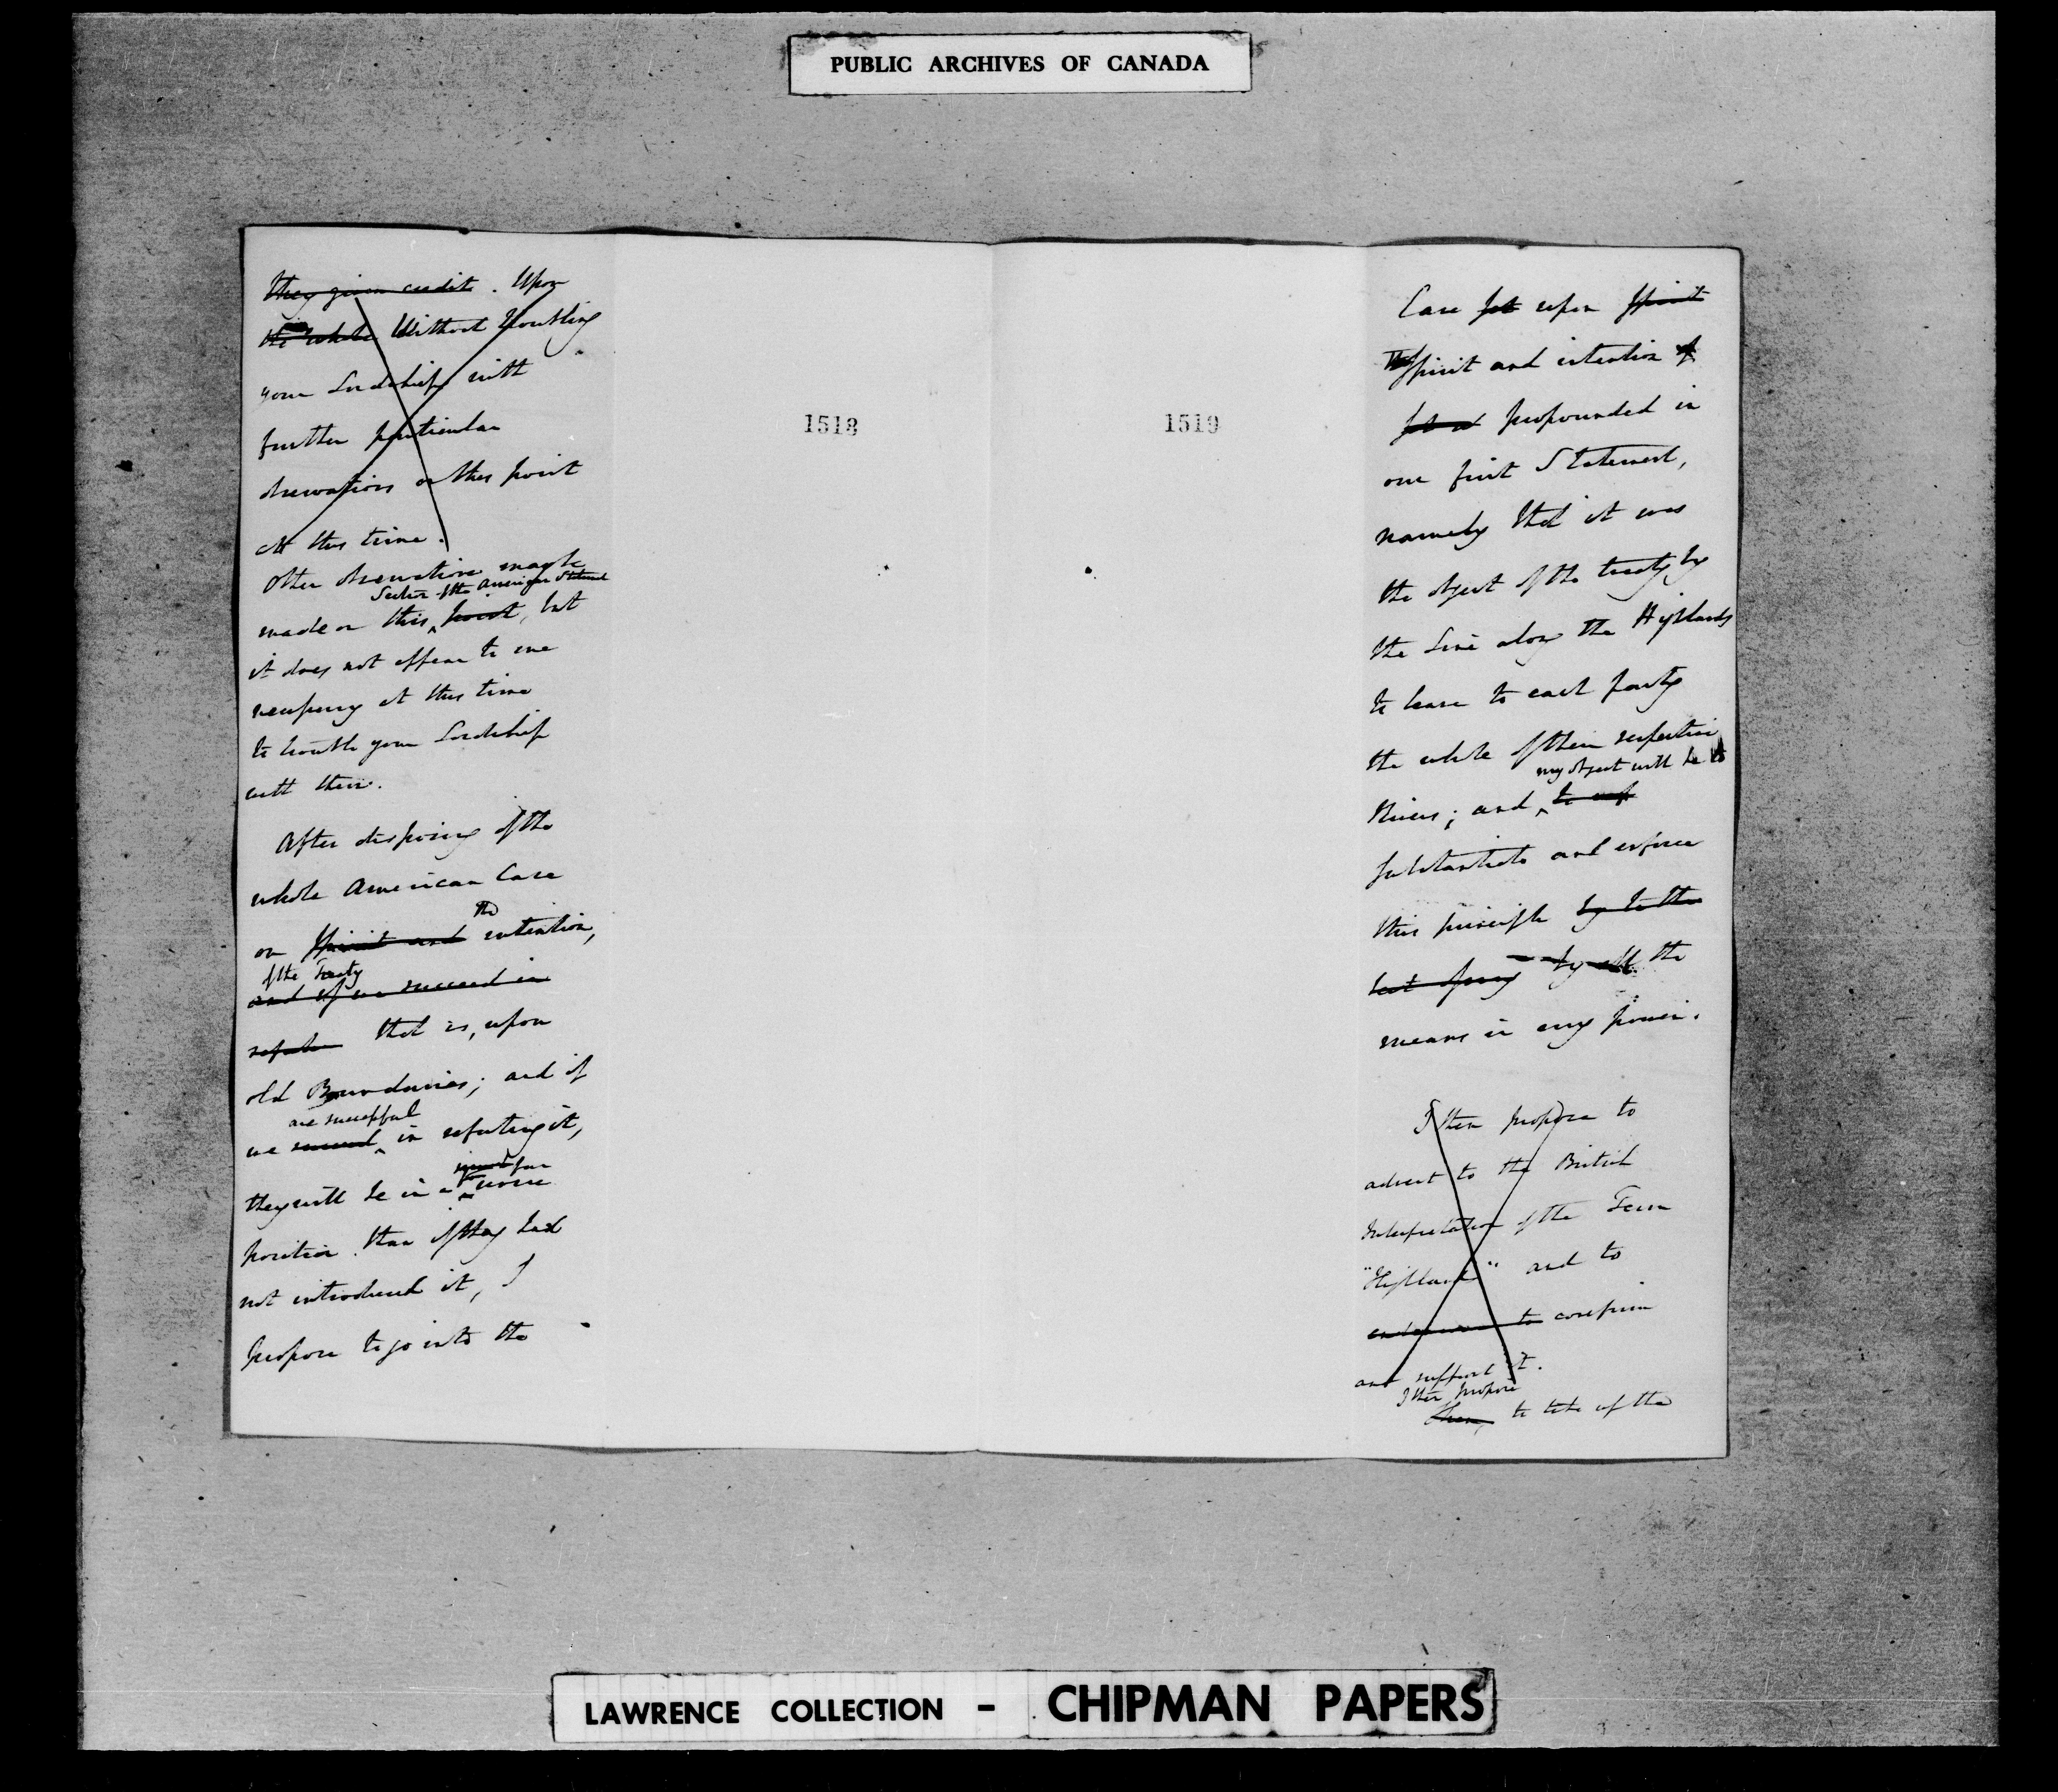 PUBLIC ARCHIVES OF CANADA
they given credit. Upon
the whole Without troubling
your Lordship with
further particular
observations on this point
at this time.
Other observations may be
Section of the American Statement
made on this point, but
it does not appear to me
necessary at this time
to trouble your Lordship
with them.
After disposing of the
whole American Case
the
on Spirit and intention,
of the Treaty
and if we succeed in
that is, upon
old Boundaries; and if
are successful
we succeed in refuting it,
far
they will be in a worse
position than if they had
not introduced it, I
propose to go into the
1518
1519
Case set upon Spirit
The Spirit and intention of
propounded in
our first Statement,
namely that it was
the object of the treaty by
the Line along the Highlands
to leave to each party
the whole of their respective
my object will be to
Rivers; and
substantiate and enforce
this principle
by all the
means in my power.
I then propose to
advert to the British
Interpretation of the Term
"Highlands" and to
endeavour to confirm
and support it.
I then propose
then, to take up the
LAWRENCE COLLECTION - CHIPMAN PAPERS